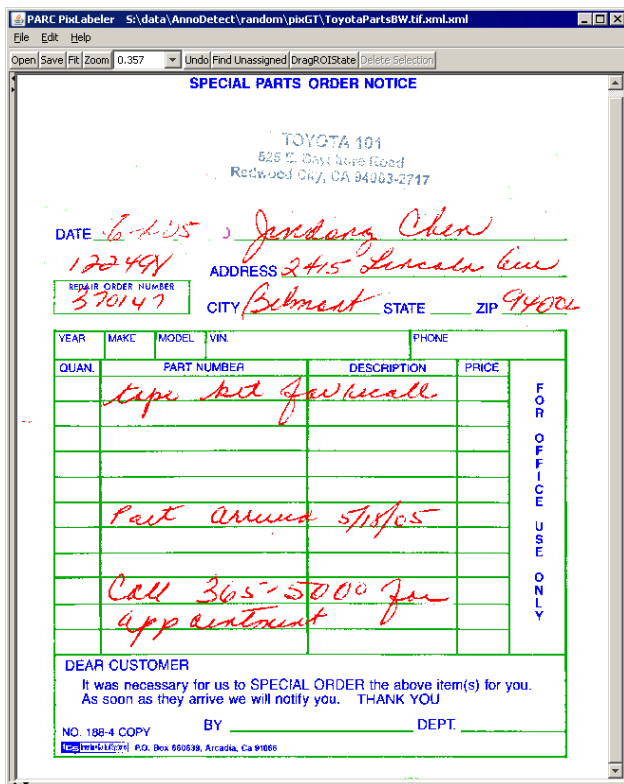 PARC PixLabeler S:\data\AnnoDetect\random\pixGT\ToyotaPartsBW.tif.xml.xml
File Edit Help
Open Save Fit Zoom 0.357 Undo Find Unassigned DragROIState Delete Selection
SPECIAL PARTS ORDER NOTICE
TOYOTA 101
525 E. Bayshore Road
Redwood City, CA 94063-2717
DATE 6-1-05 Jindong Chen
122498 ADDRESS 2415 Lincoln Ave
REPAIR ORDER NUMBER
370147 CITY Belmont STATE ZIP 94002
YEAR MAKE MODEL VIN. PHONE
QUAN. PART NUMBER DESCRIPTION PRICE
tape kit for recall
Part arrived 5/18/05
Call 365-5000 for
appointment
FOR OFFICE USE ONLY
DEAR CUSTOMER
It was necessary for us to SPECIAL ORDER the above item(s) for you.
As soon as they arrive we will notify you. THANK YOU
BY DEPT.
NO. 188-4 COPY
P.O. Box 660639, Arcadia, Ca 91066